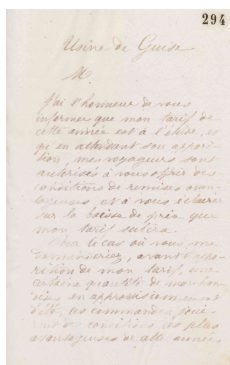 294
Usine de Guise
M.
J'ai l'honneur de vous
informer que mon tarif de
cette année est à l'étude, et
qu'en attendant son appari-
tion, mes voyageurs sont
autorisés à vous offrir des
conditions de remises avan-
tageuses, et à vous éclairer
sur la baisse de prix que
mon tarif subira.
Pour le cas où vous me
commanderiez, avant l'appa-
rition de mon tarif, une
certaine quantité de marchan-
dises en approvisionnement
d'été, ces commandes joui-
ront des conditions les plus
avantageuses de cette année.